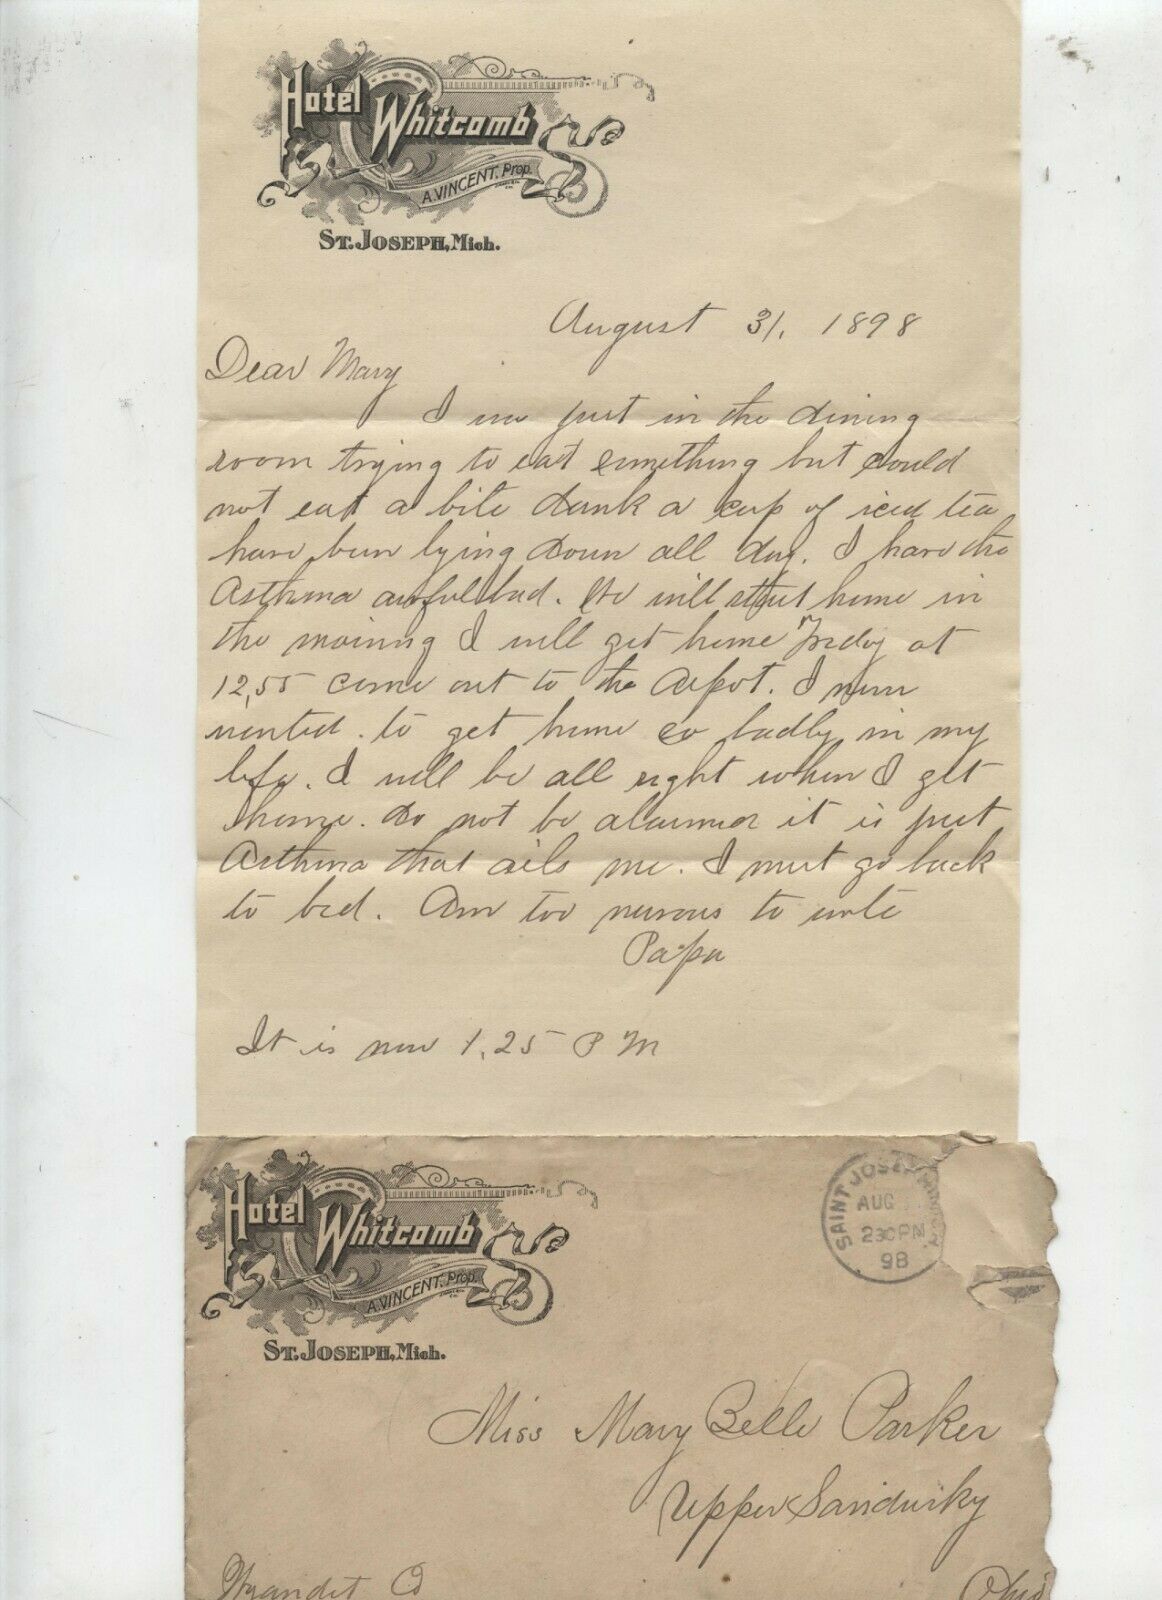 Hotel Whitcomb
A. VINCENT, Prop.
ST. JOSEPH, Mich.
August 31, 1898
Dear Mary
I was just in the dining
room trying to eat something but could
not eat a bite drank a cup of iced tea
have been lying down all day. I have the
Asthma awful bad. We will start home in
the morning I will get home Friday at
12,55 come out to the depot. I never
wanted to get home so badly in my
life. I will be all right when I get
home. Do not be alarmed it is just
Asthma that ails me. I must go back
to bed. Am too nervous to write
Papa
It is now 1,25 P M
Hotel Whitcomb
A. VINCENT, Prop.
ST. JOSEPH, Mich.
SAINT JOSEPH
AUG
230PM
98
Miss Mary Belle Parker
Upper Sandusky
Wyandot Co Ohio